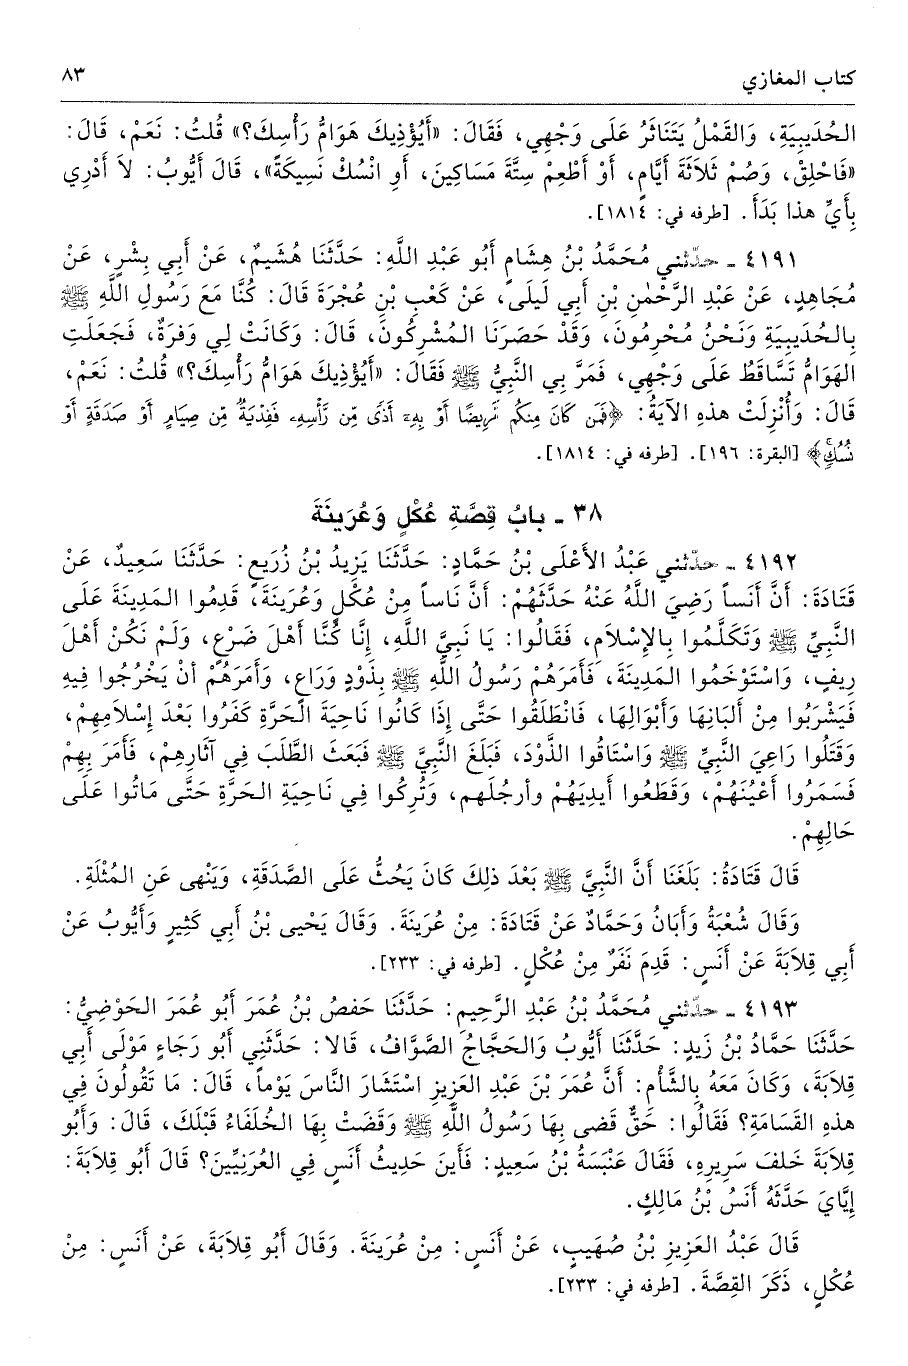 كتاب المغازي ٨٣
الحُدَيبِيَةِ، وَالقَمْلُ يَتَنَاثَرُ عَلَى وَجْهِي، فَقَالَ: «أَيُؤْذِيكَ هَوَامُّ رَأْسِكَ؟» قُلتُ: نَعَمْ، قَالَ:
«فَاحْلِقْ، وَصُمْ ثَلاَثَةَ أَيَّامٍ، أَوْ أَطْعِمْ سِتَّةَ مَسَاكِينَ، أَوِ انْسُكْ نَسِيكَةً»، قَالَ أَيُّوبُ: لاَ أَدْرِي
بِأَيِّ هذا بَدَأَ. [طرفه في: ١٨١٤].
٤١٩١ ـ حدّثني مُحَمَّدُ بْنُ هِشَامٍ أَبُو عَبْدِ اللَّهِ: حَدَّثَنَا هُشَيمٌ، عَنْ أَبِي بِشْرٍ، عَنْ
مُجَاهِدٍ، عَنْ عَبْدِ الرَّحْمٰنِ بْنِ أَبِي لَيلَى، عَنْ كَعْبِ بْنِ عُجْرَةَ قَالَ: كُنَّا مَعَ رَسُولِ اللَّهِ ﷺ
بِالحُدَيبِيَةِ وَنَحْنُ مُحْرِمُونَ، وَقَدْ حَصَرَنَا المُشْرِكُونَ، قَالَ: وَكَانَتْ لِي وَفرَةٌ، فَجَعَلَتِ
الهَوَامُّ تَسَّاقَطُ عَلَى وَجْهِي، فَمَرَّ بِي النَّبِيُّ ﷺ فَقَالَ: «أَيُؤْذِيكَ هَوَامُّ رَأْسِكَ؟» قُلتُ: نَعَمْ،
قَالَ: وَأُنْزِلَتْ هذهِ الآيَةُ: ﴿فَمَن كَانَ مِنكُم مَّرِيضًا أَوْ بِهِۦٓ أَذًى مِّن رَّأْسِهِۦ فَفِدْيَةٌ مِّن صِيَامٍ أَوْ صَدَقَةٍ أَوْ
نُسُكٍۚ﴾ [البقرة: ١٩٦]. [طرفه في: ١٨١٤].
٣٨ ـ بابُ قِصَّةِ عُكْلٍ وَعُرَينَةَ
٤١٩٢ ـ حدّثني عَبْدُ الأَعْلَى بْنُ حَمَّادٍ: حَدَّثَنَا يَزِيدُ بْنُ زُرَيعٍ: حَدَّثَنَا سَعِيدٌ، عَنْ
قَتَادَةَ: أَنَّ أَنَساً رَضِيَ اللَّهُ عَنْهُ حَدَّثَهُمْ: أَنَّ نَاساً مِنْ عُكْلٍ وَعُرَينَةَ، قَدِمُوا المَدِينَةَ عَلَى
النَّبِيِّ ﷺ وَتَكَلَّمُوا بِالإِسْلاَمِ، فَقَالُوا: يَا نَبِيَّ اللَّهِ، إِنَّا كُنَّا أَهْلَ ضَرْعٍ، وَلَمْ نَكُنْ أَهْلَ
رِيفٍ، وَاسْتَوْخَمُوا المَدِينَةَ، فَأَمَرَهُمْ رَسُولُ اللَّهِ ﷺ بِذَوْدٍ وَرَاعٍ، وَأَمَرَهُمْ أَنْ يَخْرُجُوا فِيهِ
فَيَشْرَبُوا مِنْ أَلبَانِهَا وَأَبْوَالِهَا، فَانْطَلَقُوا حَتَّى إِذَا كَانُوا نَاحِيَةَ الحَرَّةِ كَفَرُوا بَعْدَ إِسْلاَمِهِمْ،
وَقَتَلُوا رَاعِيَ النَّبِيِّ ﷺ وَاسْتَاقُوا الذَّوْدَ، فَبَلَغَ النَّبِيَّ ﷺ فَبَعَثَ الطَّلَبَ فِي آثَارِهِمْ، فَأَمَرَ بِهِمْ
فَسَمَرُوا أَعْيُنَهُمْ، وَقَطَعُوا أَيدِيَهُمْ وأرجُلَهم، وَتُرِكُوا فِي نَاحِيَةِ الحَرَّةِ حَتَّى مَاتُوا عَلَى
حَالِهِمْ.
قَالَ قَتَادَةُ: بَلَغَنَا أَنَّ النَّبِيَّ ﷺ بَعْدَ ذلِكَ كَانَ يَحُثُّ عَلَى الصَّدَقَةِ، وَيَنْهى عَنِ المُثْلَةِ.
وَقَالَ شُعْبَةُ وَأَبَانُ وَحَمَّادٌ عَنْ قَتَادَةَ: مِنْ عُرَينَةَ. وَقَالَ يَحْيى بْنُ أَبِي كَثِيرٍ وَأَيُّوبُ عَنْ
أَبِي قِلاَبَةَ عَنْ أَنَسٍ: قَدِمَ نَفَرٌ مِنْ عُكْلٍ. [طرفه في: ٢٣٣].
٤١٩٣ ـ حدّثني مُحَمَّدُ بْنُ عَبْدِ الرَّحِيمِ: حَدَّثَنَا حَفصُ بْنُ عُمَرَ أَبُو عُمَرَ الحَوْضِيُّ:
حَدَّثَنَا حَمَّادُ بْنُ زَيدٍ: حَدَّثَنَا أَيُّوبُ وَالحَجَّاجُ الصَّوَّافُ، قَالاَ: حَدَّثَنِي أَبُو رَجَاءٍ مَوْلَى أَبِي
قِلاَبَةَ، وَكَانَ مَعَهُ بِالشَّأْمِ: أَنَّ عُمَرَ بْنَ عَبْدِ العَزِيزِ اسْتَشَارَ النَّاسَ يَوْماً، قَالَ: مَا تَقُولُونَ فِي
هذهِ القَسَامَةِ؟ فَقَالُوا: حَقٌّ قَضى بِهَا رَسُولُ اللَّهِ ﷺ وَقَضَتْ بِهَا الخُلَفَاءُ قَبْلَكَ، قَالَ: وَأَبُو
قِلاَبَةَ خَلفَ سَرِيرِهِ، فَقَالَ عَنْبَسَةُ بْنُ سَعِيدٍ: فَأَينَ حَدِيثُ أَنَسٍ فِي العُرَنِيِّينَ؟ قَالَ أَبُو قِلاَبَةَ:
إِيَّايَ حَدَّثَهُ أَنَسُ بْنُ مَالِكٍ.
قَالَ عَبْدُ العَزِيزِ بْنُ صُهَيبٍ، عَنْ أَنَسٍ: مِنْ عُرَينَةَ. وَقَالَ أَبُو قِلاَبَةَ، عَنْ أَنَسٍ: مِنْ
عُكْلٍ، ذَكَرَ القِصَّةَ. [طرفه في: ٢٣٣].